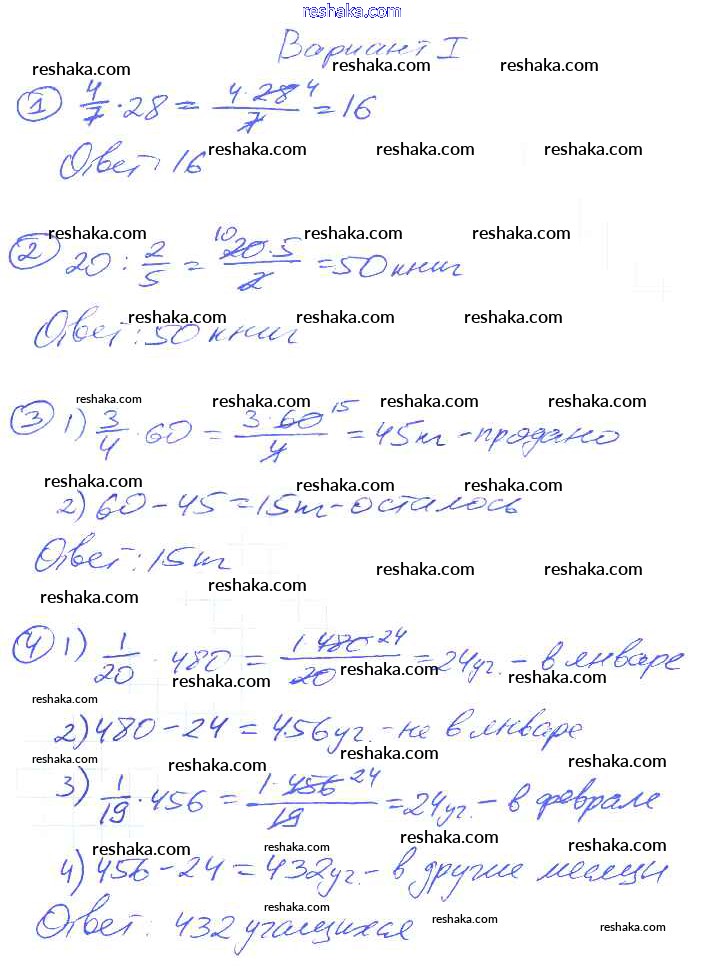 reshaka.com
Вариант I
reshaka.com reshaka.com reshaka.com reshaka.com
① 4/7 · 28 = 4·28 4/7 = 16
reshaka.com reshaka.com reshaka.com
Ответ: 16
reshaka.com reshaka.com reshaka.com reshaka.com
② 20 : 2/5 = 10 20·5/2 = 50 книг
reshaka.com reshaka.com reshaka.com
Ответ: 50 книг
reshaka.com reshaka.com reshaka.com reshaka.com
③ 1) 3/4 · 60 = 3·60 15/4 = 45 т - продано
reshaka.com reshaka.com reshaka.com
2) 60 - 45 = 15 т - осталось
Ответ: 15 т
reshaka.com reshaka.com reshaka.com
reshaka.com reshaka.com reshaka.com reshaka.com
④ 1) 1/20 · 480 = 1·480 24/20 = 24 уч. - в январе
reshaka.com reshaka.com reshaka.com
reshaka.com reshaka.com reshaka.com reshaka.com
2) 480 - 24 = 456 уч. - не в январе
reshaka.com reshaka.com reshaka.com reshaka.com
3) 1/19 · 456 = 1·456 24/19 = 24 уч. - в феврале
reshaka.com reshaka.com reshaka.com reshaka.com
4) 456 - 24 = 432 уч. - в другие месяцы
reshaka.com reshaka.com reshaka.com reshaka.com
Ответ: 432 учащихся